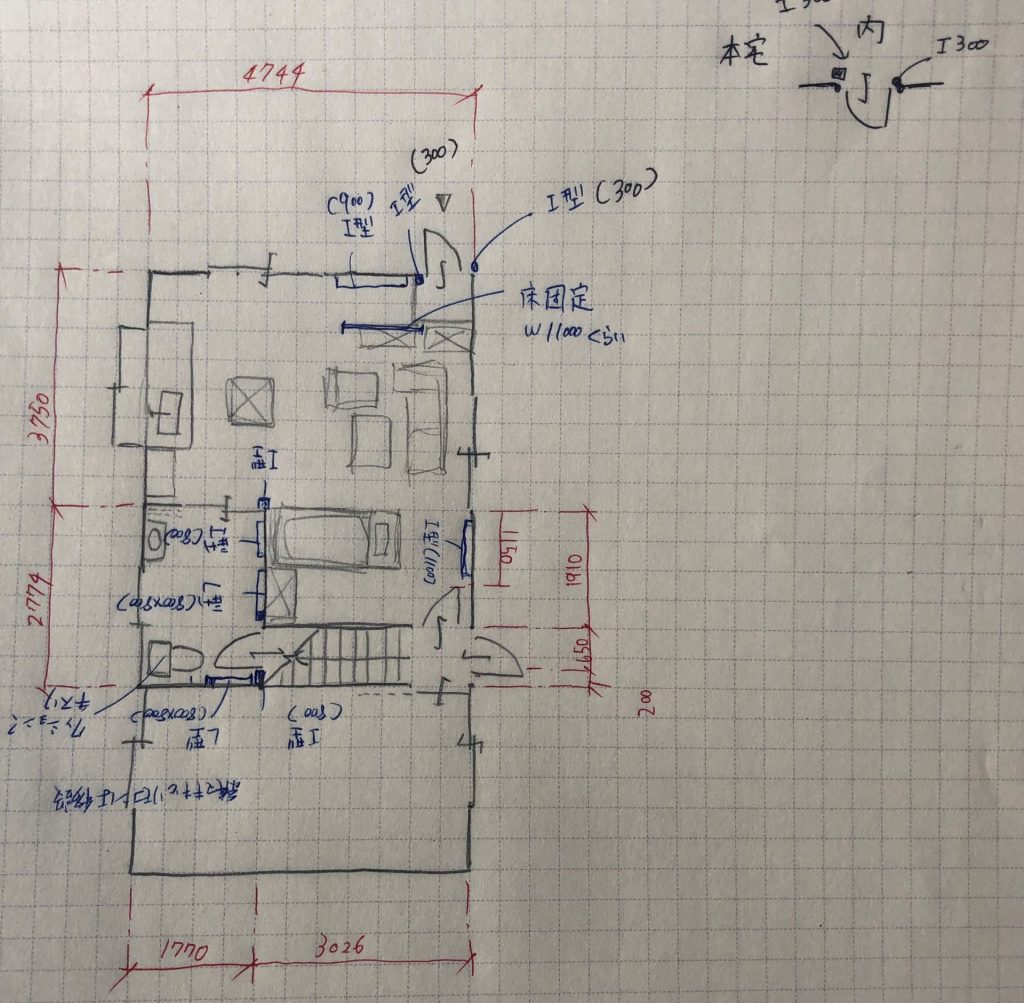 本宅
内
I 300
I 300
4744
(300)
I型
(900)
I型
I型 (300)
床固定
W1100くらい
3750
I型
I型
(800)
I型(1100)
1150
1910
L型(800×800)
2774
650
200
L型
(800×800)
I型
(800)
1770
3026